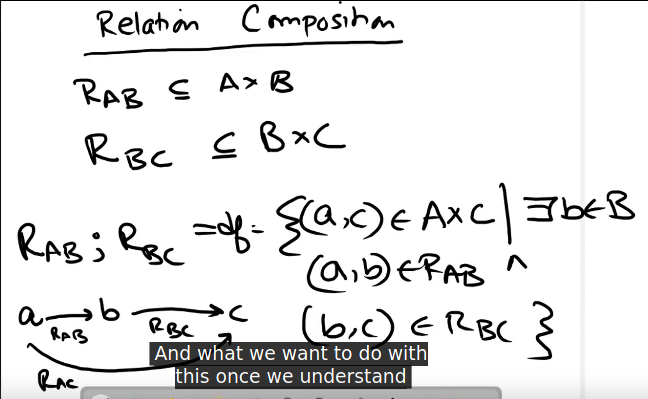 Relation Composition
R_AB ⊆ A×B
R_BC ⊆ B×C
R_AB ; R_BC =df= {(a,c) ∈ A×C | ∃b∈B
(a,b) ∈ R_AB ∧
(b,c) ∈ R_BC }
a → b → c
R_AB R_BC
R_AC
And what we want to do with
this once we understand